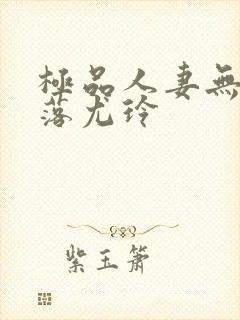 極品人妻無
落尤玲
紫玉簫